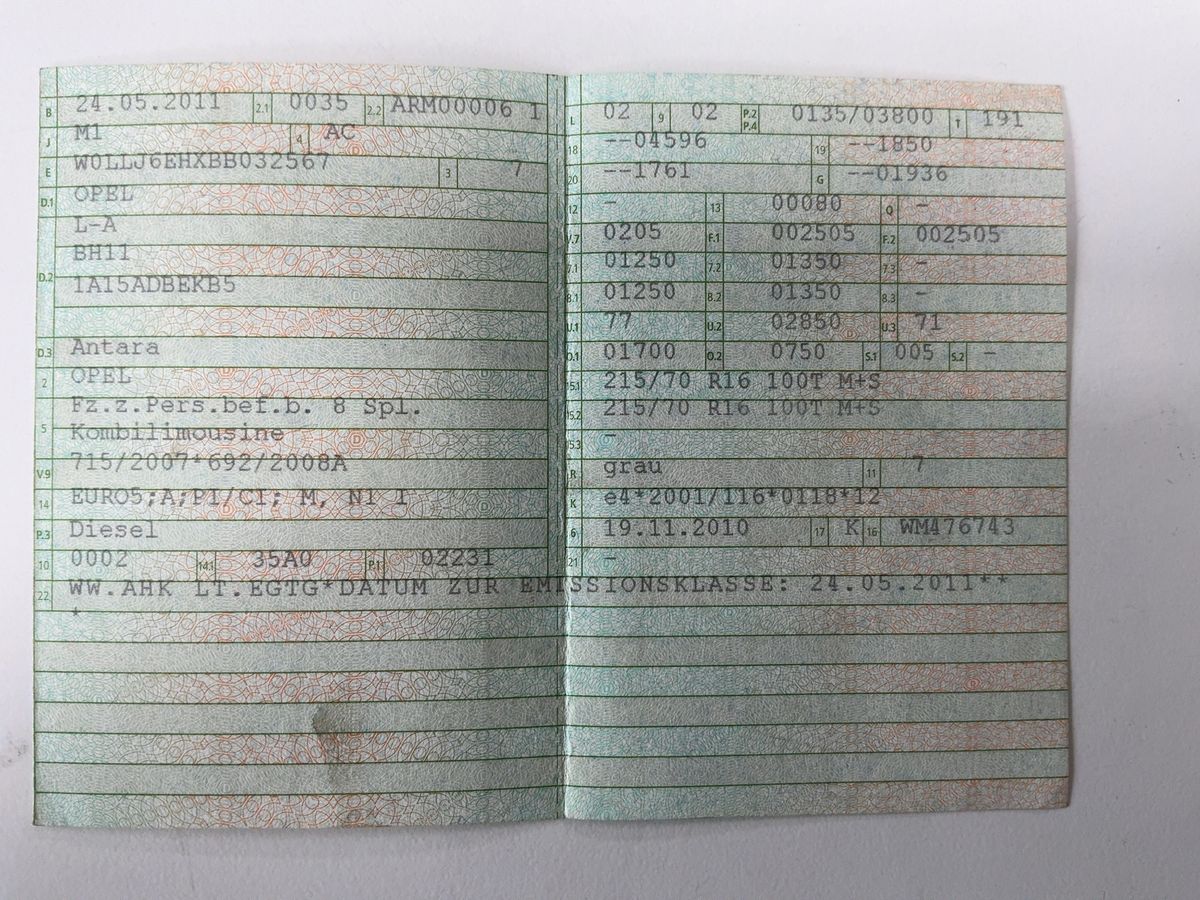 B 24.05.2011 2.1 0035 2.2 ARM00006 1
J M1 4 AC
E W0LLJ6EHXBB032567 3 7
D.1 OPEL
L-A
D.2 BH11
1A15ADBEKB5
D.3 Antara
2 OPEL
5 Fz.z.Pers.bef.b. 8 Spl.
Kombilimousine
V.9 715/2007*692/2008A
14 EURO5;A;P1/C1; M, N1 I
P.3 Diesel
10 0002 14.1 35A0 P.1 02231
22 WW.AHK LT.EGTG*DATUM ZUR EMISSIONSKLASSE: 24.05.2011**
*
L 02 9 02 P.2 P.4 0135/03800 T 191
18 --04596 19 --1850
20 --1761 G --01936
12 - 13 00080 Q -
V.7 0205 F.1 002505 F.2 002505
7.1 01250 7.2 01350 7.3 -
8.1 01250 8.2 01350 8.3 -
U.1 77 U.2 02850 U.3 71
O.1 01700 O.2 0750 S.1 005 S.2 -
15.1 215/70 R16 100T M+S
15.2 215/70 R16 100T M+S
15.3 -
R grau 11 7
K e4*2001/116*0118*12
6 19.11.2010 17 K 16 WM476743
21 -